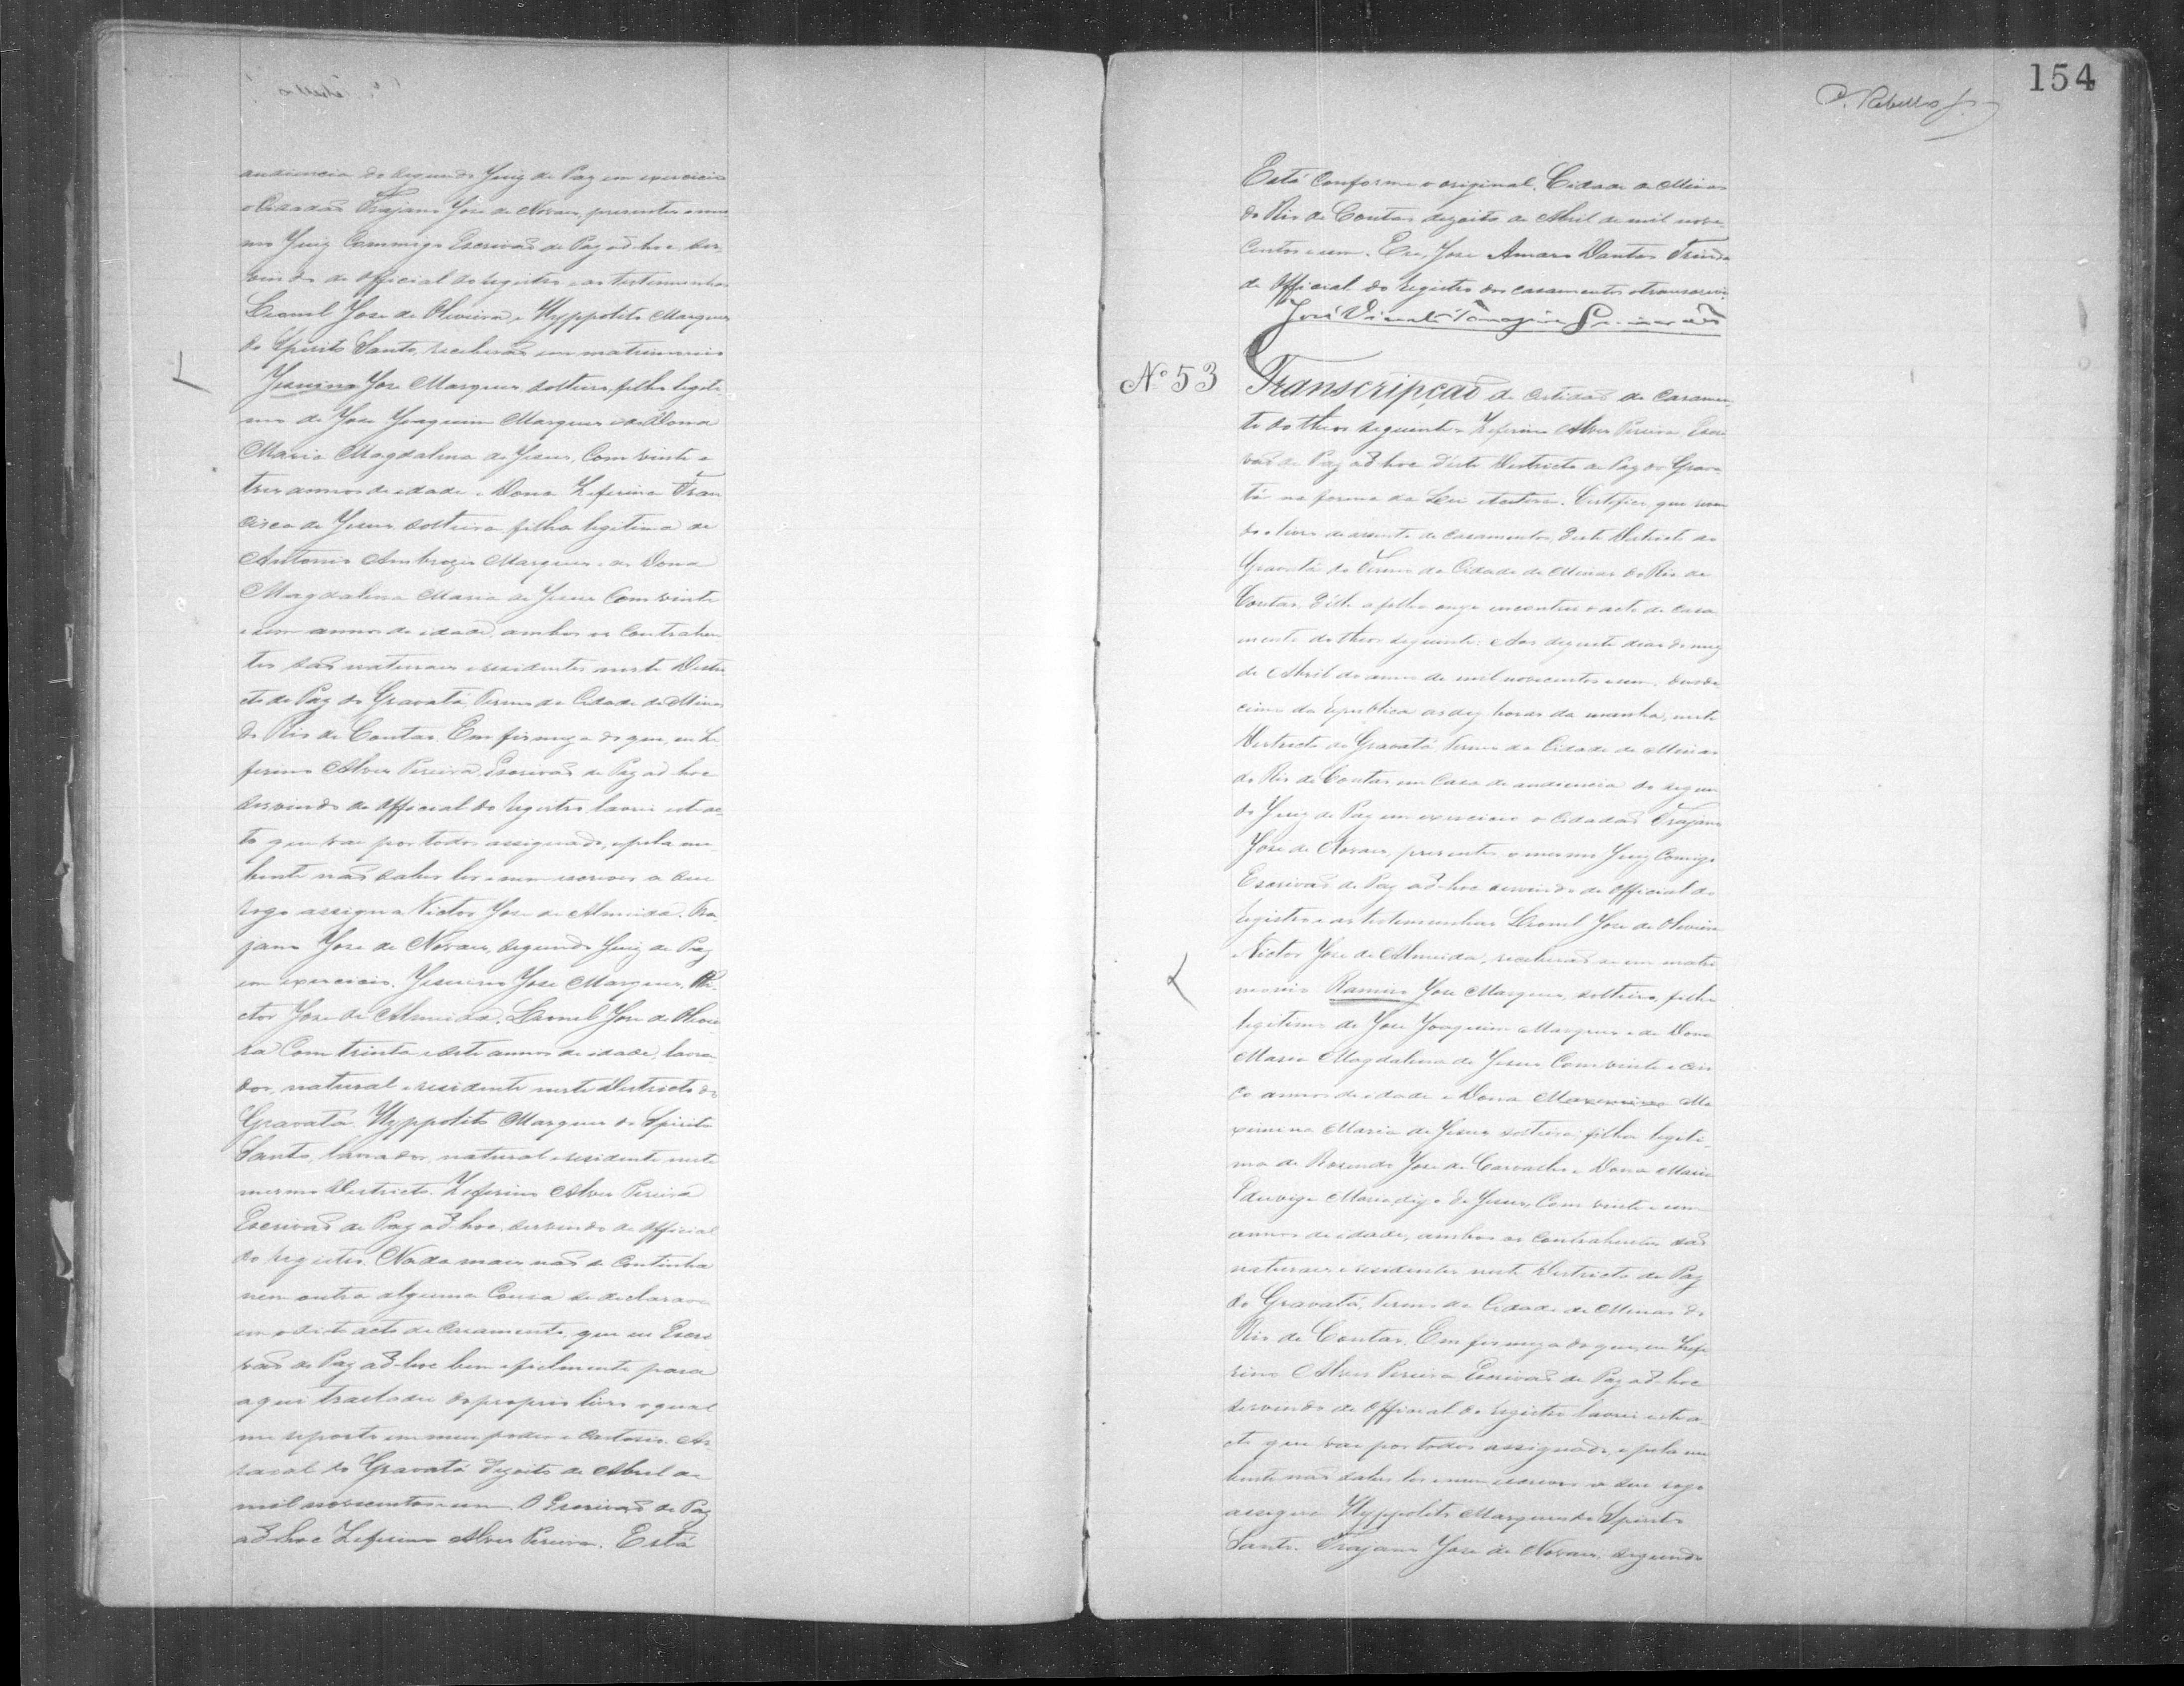 154
P. Rebello Jr.
audiencia do segundo Juiz de Paz em exercicio
o Cidadaõ Trajano José de Novaes, presentes o mes
mo Juiz Commigo Escrivaõ de Paz ad-hoc, ser-
vindo de Official do registro e as testemunhas
Leonel Jose de Oliveira e Hyppolito Marques
do Spirito Santo, receberaõ em matrimonio
Jesuino Jose Marques, solteiro, filho legiti
mo de Jose Joaquim Marques e de Dona
Maria Magdalena de Jesus, Com vinte e
tres annos de idade e Dona Zeferina Fran
cisca de Jesus, solteira, filha legitima de
Antonio Ambrozio Marques e de Dona
Magdalena Maria de Jesus Com vinte
e um annos de idade, ambos os Contrahen
tes saõ naturaes e residentes neste Distri
cto de Paz do Gravatá, Termo da Cidade de Minas
do Rio de Contas. Em firmeza do que, eu Ze
ferino Alves Pereira, Escrivaõ de Paz ad hoc
servindo de Official do registro lavrei este ac
to que vae por todos assignado, e pela nu
bente naõ saber ler e nem escrever a seu
rogo assigna Victor Jose de Almeida. Tra
jano Jose de Novaes, segundo Juiz de Paz
em exercicio. Jesuino Jose Marques. Vi-
ctor Jose de Almeida. Leonel Jose de Olivei
ra Com trinta e sete annos de idade, lavra
dor, natural e residente neste Districto do
Gravatá. Hyppolito Marques do Spirito
Santo, lavrador, natural e residente neste
mesmo Districto. Zeferino Alves Pereira
Escrivaõ de Paz ad-hoc, servindo de Official
do registro. Nada mais naõ se Continha
nem outra alguma Cousa se declarava
em o dito acto de Casamento, que eu Escri
vaõ de Paz ad-hoc bem e fielmente para
aqui trasladei do proprio livro o qual
me reporto em meu poder e Cartorio. Ar-
raial do Gravatá dezoito de Abril de
mil novecentos e um. O Escrivaõ de Paz
ad-hoc Zeferino Alves Pereira. Está
Está Conforme o original. Cidade de Minas
do Rio de Contas dezoito de Abril de mil nove-
centos e um. Eu, Jose Amaro Dantas Trinda
de Official do registro dos casamentos o transcrevi.
José
No 53
Transcripçaõ da Certidaõ de Casamen
to do theor seguinte: Zeferino Alves Pereira, Escri
vaõ de Paz ad hoc d'este Districto de Paz do Grava
tá na forma da Lei etcetera. Certifico, que ven
do o livro de assento de Casamentos, deste Districto do
Gravatá do Termo da Cidade de Minas do Rio de
Contas, d'elle a folha onze encontrei o acto de Casa
mento do theor seguinte: Aos dezesete dias do mez
de Abril do anno de mil novecentos e um,
cimo da Republica as dez horas da manha, neste
Districto do Gravatá Termo da Cidade de Minas
do Rio de Contas em Casa de audiencia do segun
do Juiz de Paz em exercicio o Cidadaõ Trajano
Jose de Novaes, presentes o mesmo Juiz Comigo
Escrivaõ de Paz ad-hoc servindo de Official do
registro e as testemunhas Leonel Jose de Oliveira
e Victor Jose de Almeida, receberaõ se em matri
monio Ramiro Jose Marques, solteiro, filho
legitimo de Jose Joaquim Marques e de Dona
Maria Magdalena de Jesus Com vinte e cin
co annos de idade e Dona Maximina Ma
ximina Maria de Jesus solteira, filha legiti-
ma de Rosendo Jose de Carvalho e Dona Maria
Eduvige Maria digo de Jesus, Com vinte e um
annos de idade, ambos os Contrahentes saõ
naturaes e residentes neste Districto de Paz
do Gravatá, Termo da Cidade de Minas do
Rio de Contas. Em firmeza do que, eu Zefe
rino Alves Pereira Escrivaõ de Paz ad-hoc
servindo de Official do registro lavrei este a
cto que vae por todos assignado, e pela nu
bente naõ saber ler e nem escrever a seu rogo
assigna Hyppolito Marques do Spirito
Santo. Trajano Jose de Novaes, segundo